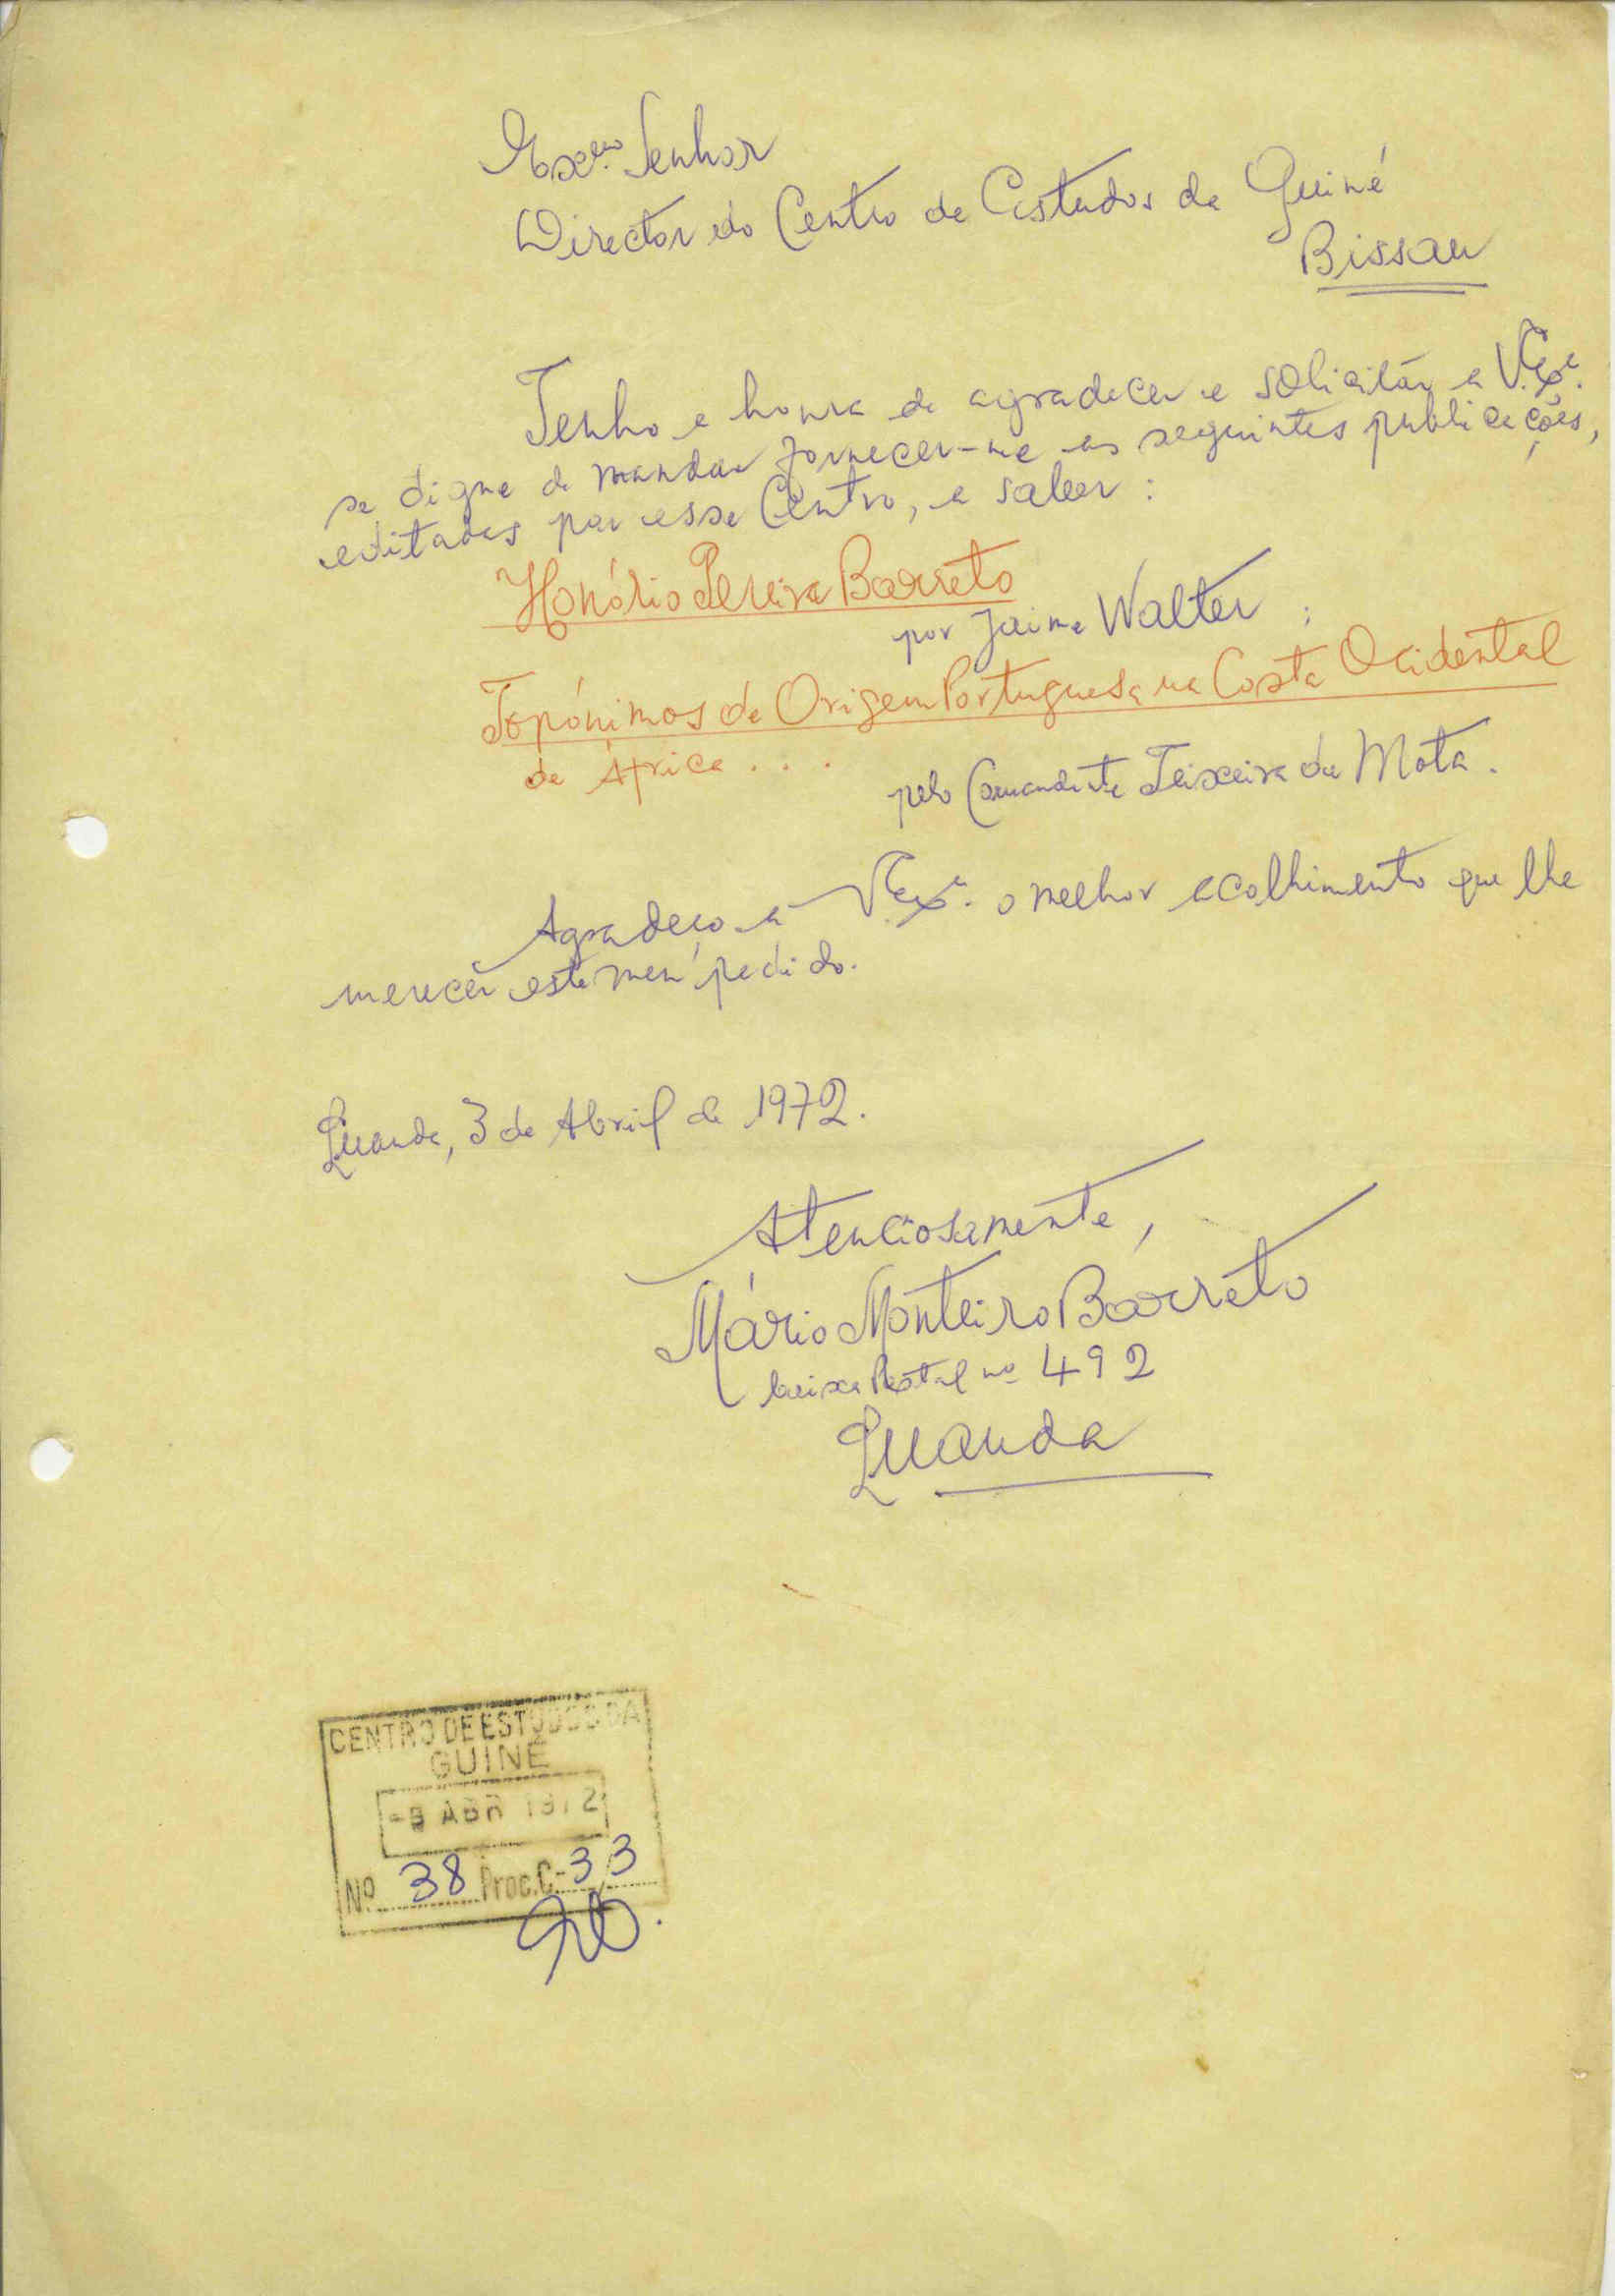 Exᵐᵒ. Senhor
Director do Centro de Estudos da Guiné
Bissau
Tenho a honra de agradecer e solicitar a V. Exª.
se digne de mandar fornecer-me as seguintes publicações,
editadas por esse Centro, a saber:
Honório Pereira Barreto
por Jaime Walter;
Topónimos de Origem Portuguesa na Costa Ocidental
de África...
pelo Comandante Teixeira da Mota.
Agradeço a V. Exª. o melhor acolhimento que lhe
merecer este meu pedido.
Luanda, 3 de Abril de 1972.
Atenciosamente,
Mário Monteiro Barreto
Caixa Postal nº 492
Luanda
CENTRO DE ESTUDOS DA
GUINÉ
ABR 1972
Nº 38 Proc. C-3/3